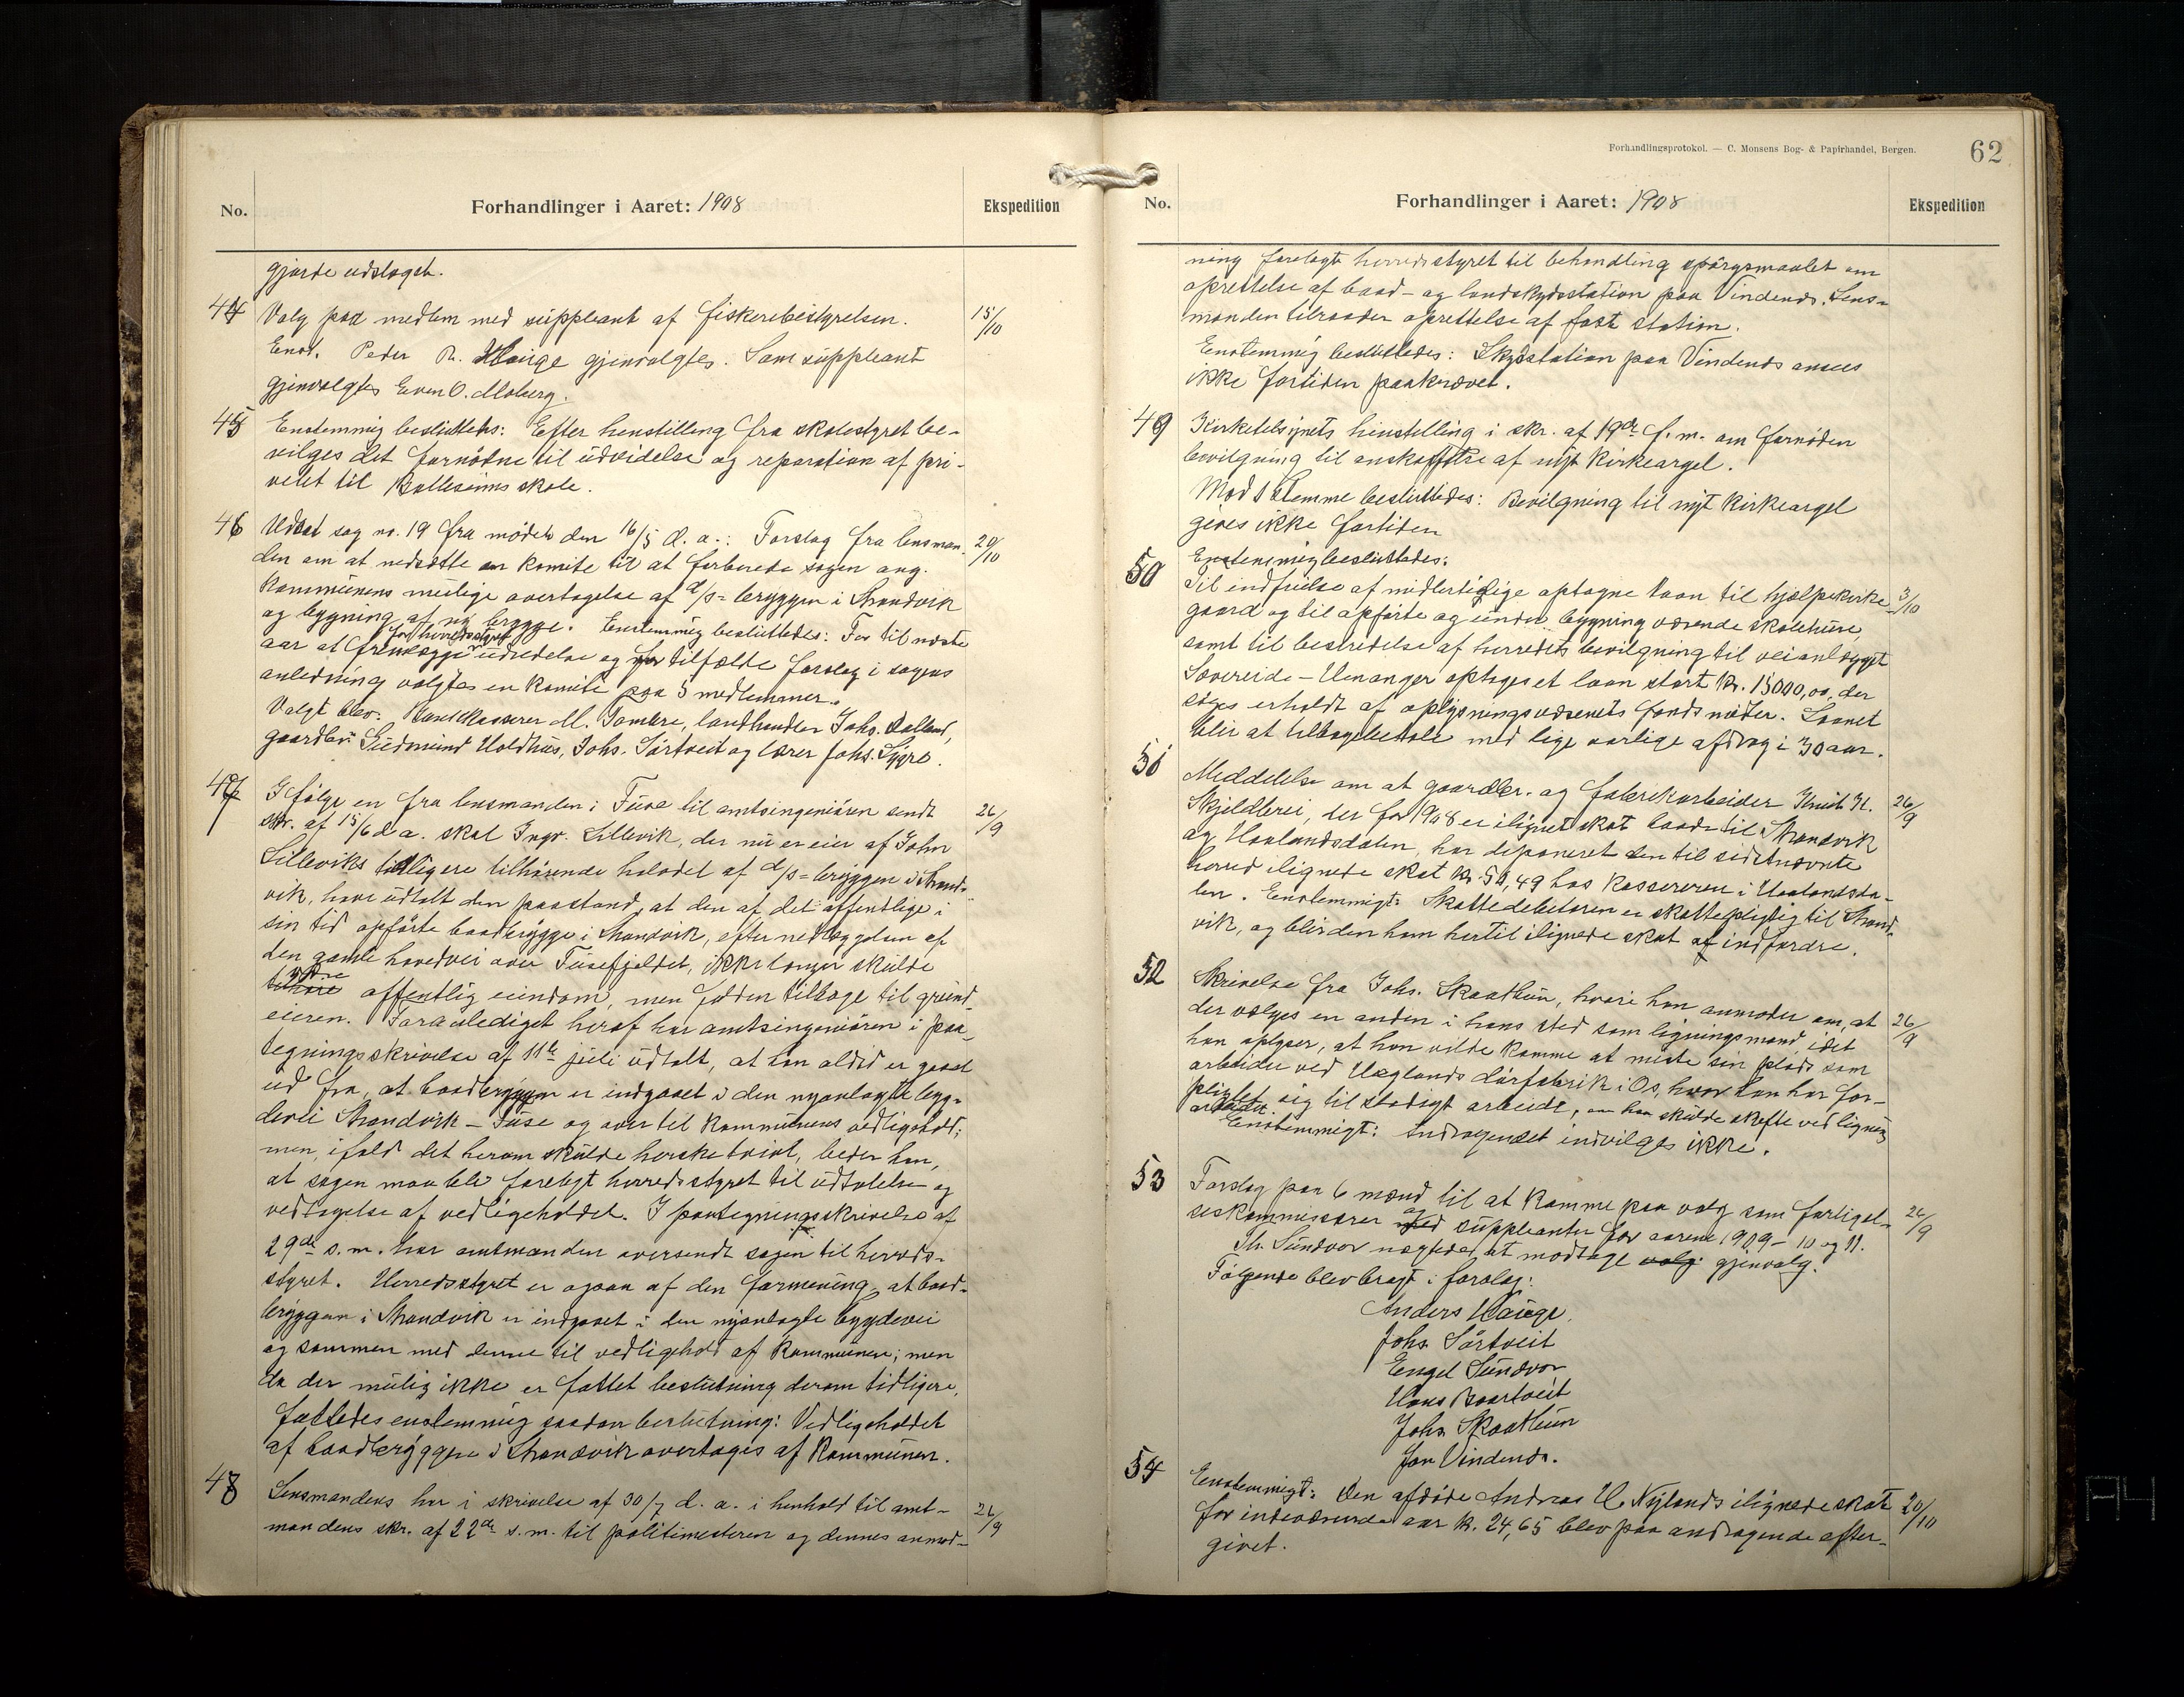 No.
Forhandlinger i Aaret: 1908
Ekspedition
gjorde udslaget.
44 Valg paa medlem med suppleant af fiskeribestyrelsen. 15/10
Enst. Peder N. Hauge gjenvalgtes. Som suppleant
gjenvalgtes Even O. Moberg.
45 Enstemmig besluttets: Efter henstilling fra skolestyret be-
vilges det fornødne til udvidelse og reparation af pri-
vetet til Bollesens skole.
46 Udsat sag no. 19 fra mødet den 16/5 d. a.: Forslag fra lensman- 20/10
den om at nedsætte en komite til at forberede sagen ang.
kommunens mulige overtagelse af d/s= bryggen i Strandvik
og bygning af ny brygge. Enstemmig besluttedes: For til næste
aar at fremlægge for herredsstyret udredelse og tilfælde forslag i sagens
anledning valgtes en komite paa 5 medlemmer.
Valgt blev: M. Tombre, landhandler Johs. Dalland,
gaardbr. Gudmund Holdhus, Johs. Sørtveit og lærer Johs. Lygre.
47 Ifølge en fra lensmanden i Fuse til amtsingeniøren sendt 26/9
skr. af 15/6 d. a. skal Ingv. Lillevik, der nu er eier af John
Lilleviks tidligere tilhørende halvdel af d/s= bryggen i Strand-
vik, have udtalt den paastand, at den af det offentlige i
sin tid opførte baadbrygge i Strandvik, efter nedlæggelsen af
den gamle hovedvei over Fusefjeldet, ikke længer skulde
være offentlig eiendom, men falden tilbage til grund-
eieren. Foranlediget heraf har amtsingeniøren i paa-
tegningsskrivelse af 11te juli udtalt, at han altid er gaaet
ud fra, at baadbryggen er indgaaet i den nyanlagte byg-
devei Strandvik – Fuse og over til kommunens vedligehold;
men, ifald det herom skulde herske tvivl, beder han,
at sagen maa blive forelagt herredsstyret til udtalelse og
vedtagelse af vedligeholdet. I paategningsskrivelse af
29de s. m. har amtmanden oversendt sagen til herreds-
styret. Herredsstyret er ogsaa af den formening, at baad-
bryggen i Strandvik er indgaaet i den nyanlagte bygdevei
og sammen med denne til vedligehold af kommunen; men
da der mulig ikke er fattet beslutning derom tidligere,
fattedes enstemmig saadan beslutning: Vedligeholdet
af baadbryggen i Strandvik overtages af kommunen.
48 Lensmanden har i skrivelse af 30/7 d. a. i henhold til amt- 26/9
mandens skr. af 22de s. m. til politimesteren og dennes anmod-
Forhandlingsprotokol. — C. Monsens Bog- & Papirhandel, Bergen.
62
No.
Forhandlinger i Aaret: 1908
Ekspedition
ning forelagt herredsstyret til behandling spørgsmaalet om
oprettelse af baad- og landskydsstation paa Vindenes. Lens-
manden tilraader oprettelse af fast station.
Enstemmig besluttedes: Skydsstation paa Vindenes ansees
ikke fortiden paakrævet.
49 Kirketilsynets henstilling i skr. af 19de f. m. om fornøden
bevilgning til anskaffelse af nyt kirkeorgel.
Mod 1 stemme besluttedes: Bevilgning til nyt kirkeorgel
gives ikke fortiden
50 Enstemmig besluttedes:
Til indfrielse af midlertidige optagne laan til hjælpekirke- 3/10
gaard og til opførte og under bygning værende skolehuse,
samt til bestridelse af herredets bevilgning til veianlægget
Sævereide – Henanger optages et laan stort kr. 15000,00, der
søges erholdt af oplysningsvæsenets fonds midler. Laanet
blir at tilbagebetale med lige aarlige afdrag i 30 aar.
51 Meddelelse om at gaardbr. og fabrikarbeider Knut H. 26/9
Skjeldbrei, der for 1908 er ilignet skat baade til Strandvik
og Haalandsdalen, har deponeret den til sidstnævnte
herred ilignede skat kr. 50,49 hos kassereren i Haalandsda-
len. Enstemmigt: Skattedebitoren er skattepligtig til Strand-
vik, og blir den ham hertil ilignede skat at indfordre.
52 Skrivelse fra Johs. Skaathun, hvori han anmoder om, at 26/9
der vælges en anden i hans sted som ligningsmand idet
han oplyser, at han vilde komme at miste sin plads som
arbeider ved Hæglands dørfabrik i Os, hvor han har for-
pligtet sig til stadigt arbeide, om han skulde skofte ved ligning
arbeidet.
Enstemmigt: Andragendet indvilges ikke.
53 Forslag paa 6 mænd til at komme paa valg som forligel- 26/9
seskommissærer og suppleanter for aarene 1909 – 10 og 11.
Th. Sundvor nægtede at modtage valg gjenvalg.
Følgende blev bragt i forslag:
Anders Hauge.
Johs. Sørtveit
Engel Sundvor
Hans Baartveit
Johs. Skaathun
Jon Vindenes.
54 Enstemmigt: Den afdøde Andreas H. Nylands ilignede skat 20/10
for indeværende aar kr. 24,65 blev paa andragende efter-
givet.